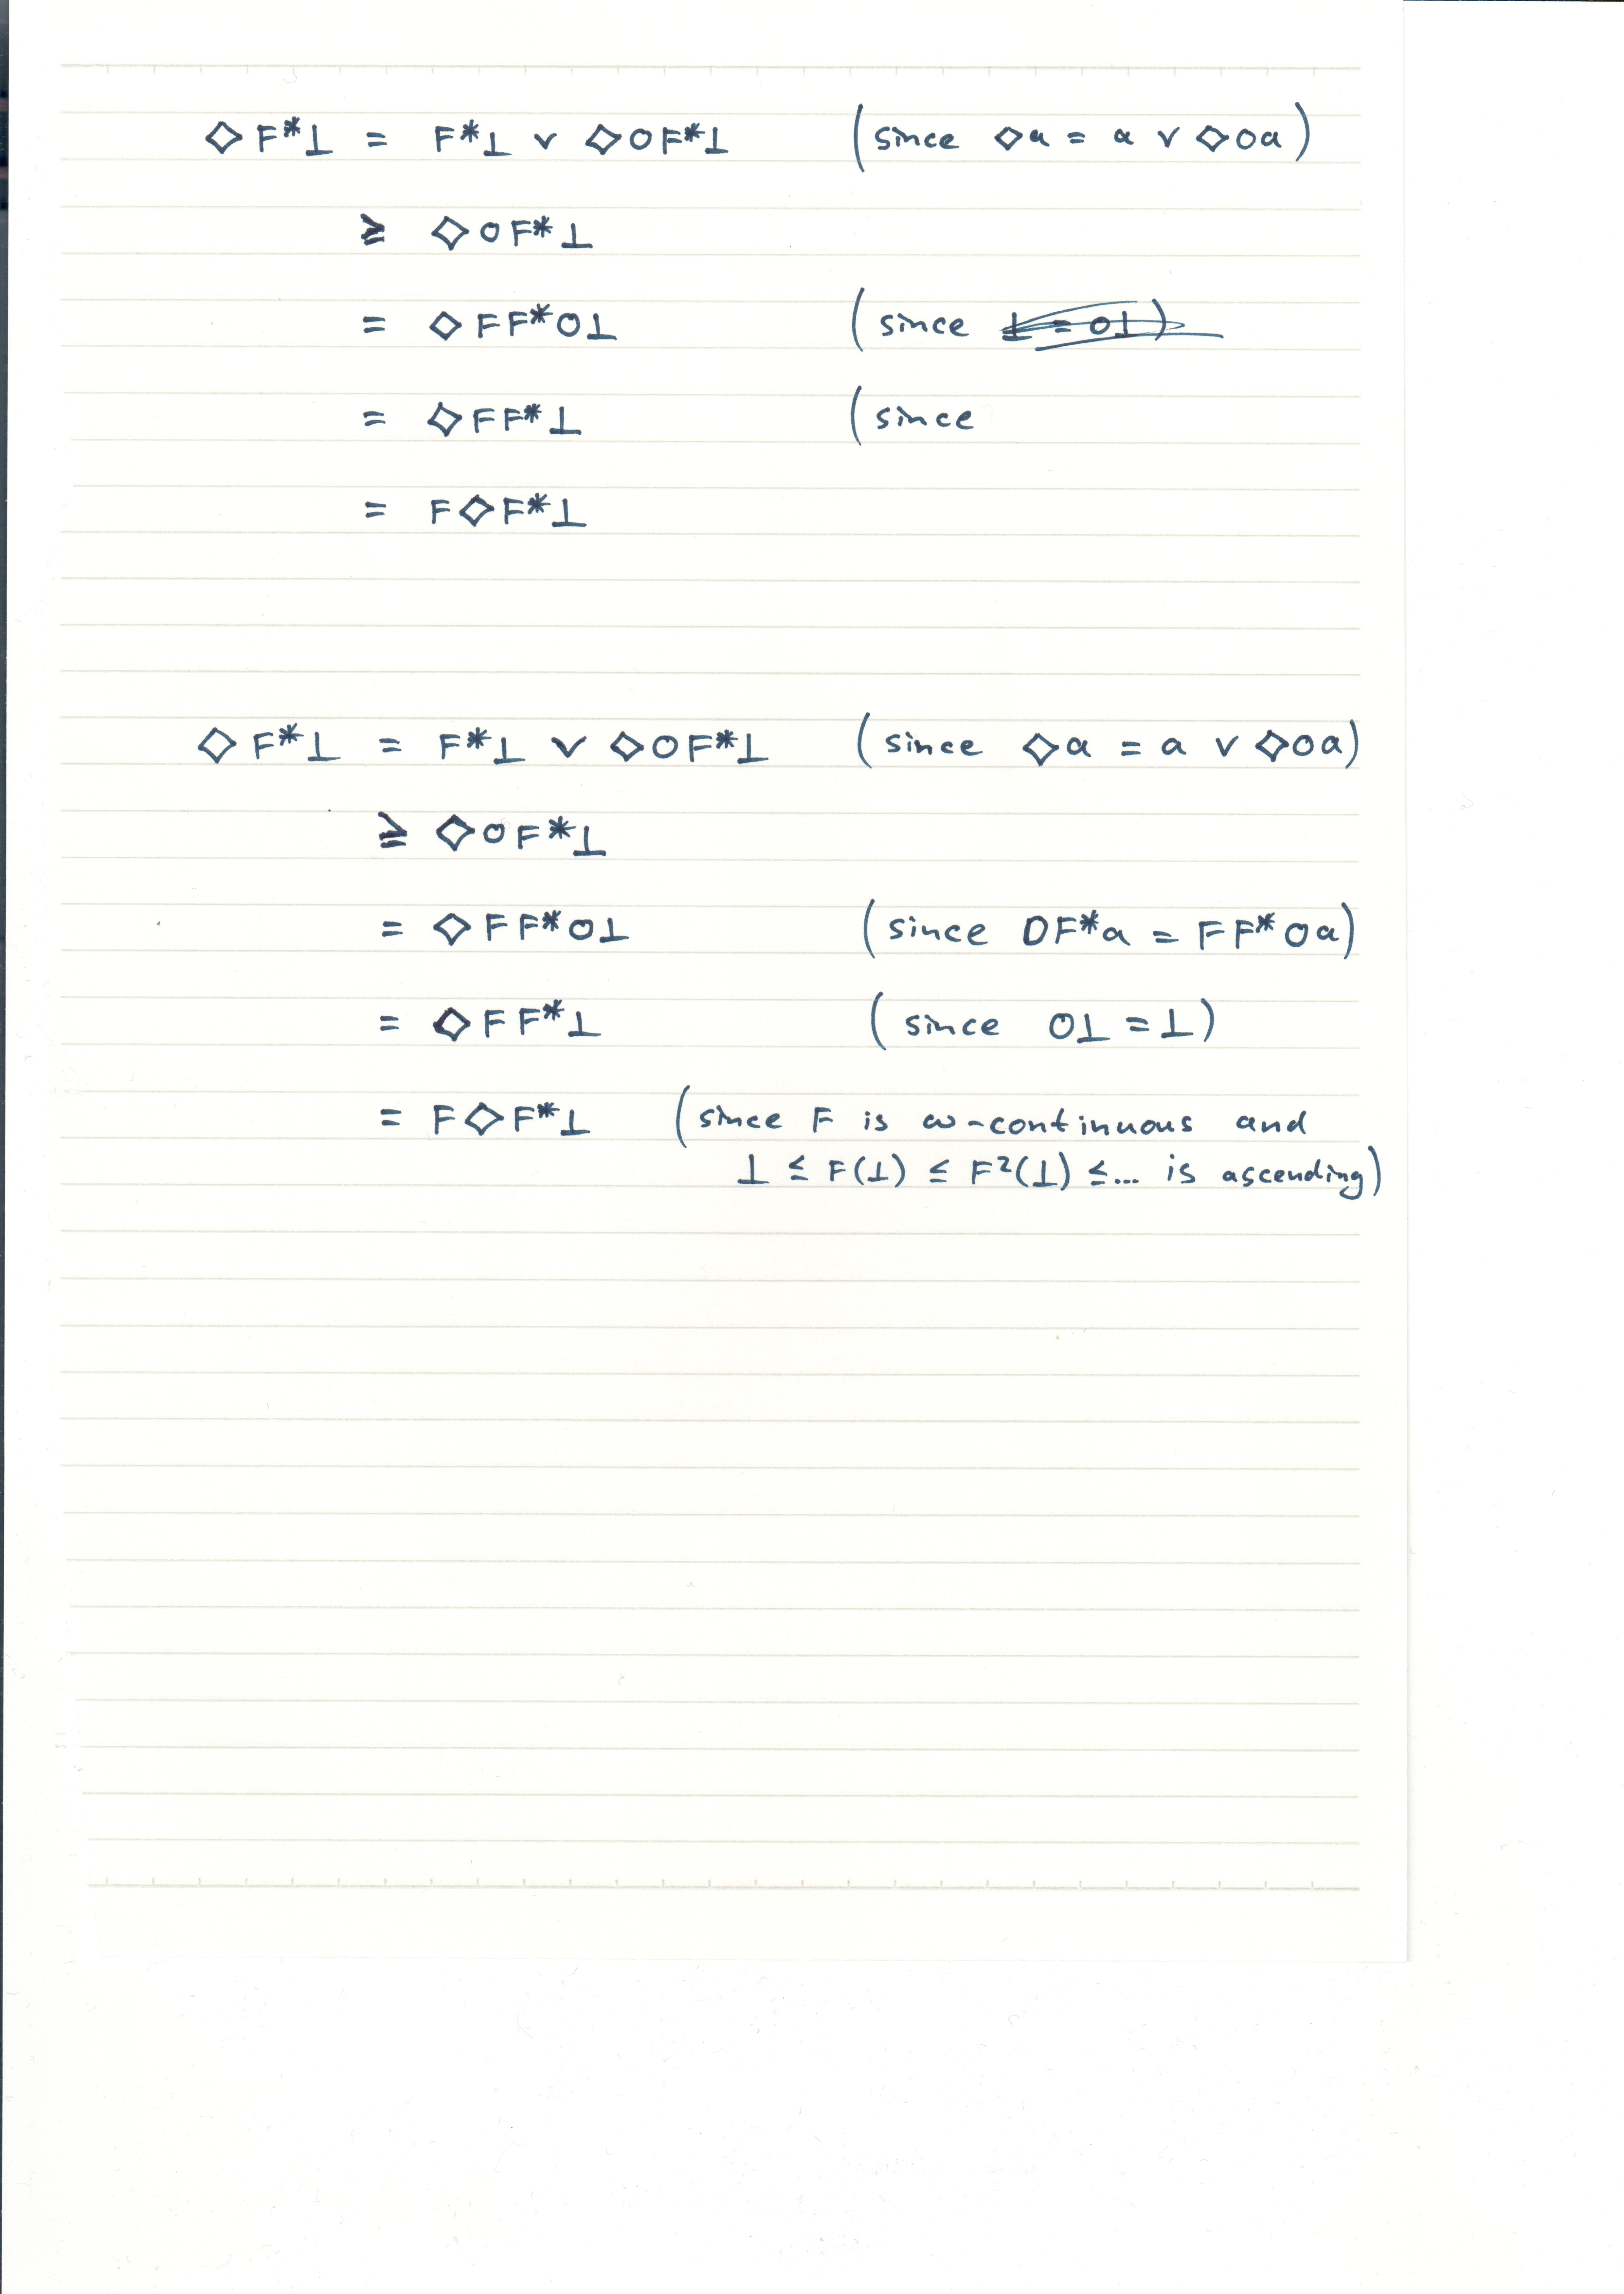 ◇F*⊥ = F*⊥ ∨ ◇OF*⊥ (since ◇a = a ∨ ◇Oa)
≥ ◇OF*⊥
= ◇FF*O⊥ (since ⊥ = O⊥)
= ◇FF*⊥ (since
= F◇F*⊥
◇F*⊥ = F*⊥ ∨ ◇OF*⊥ (since ◇a = a ∨ ◇Oa)
≥ ◇OF*⊥
= ◇FF*O⊥ (since OF*a = FF*Oa)
= ◇FF*⊥ (since O⊥ = ⊥)
= F◇F*⊥ (since F is ω-continuous and
⊥ ≤ F(⊥) ≤ F²(⊥) ≤... is ascending)